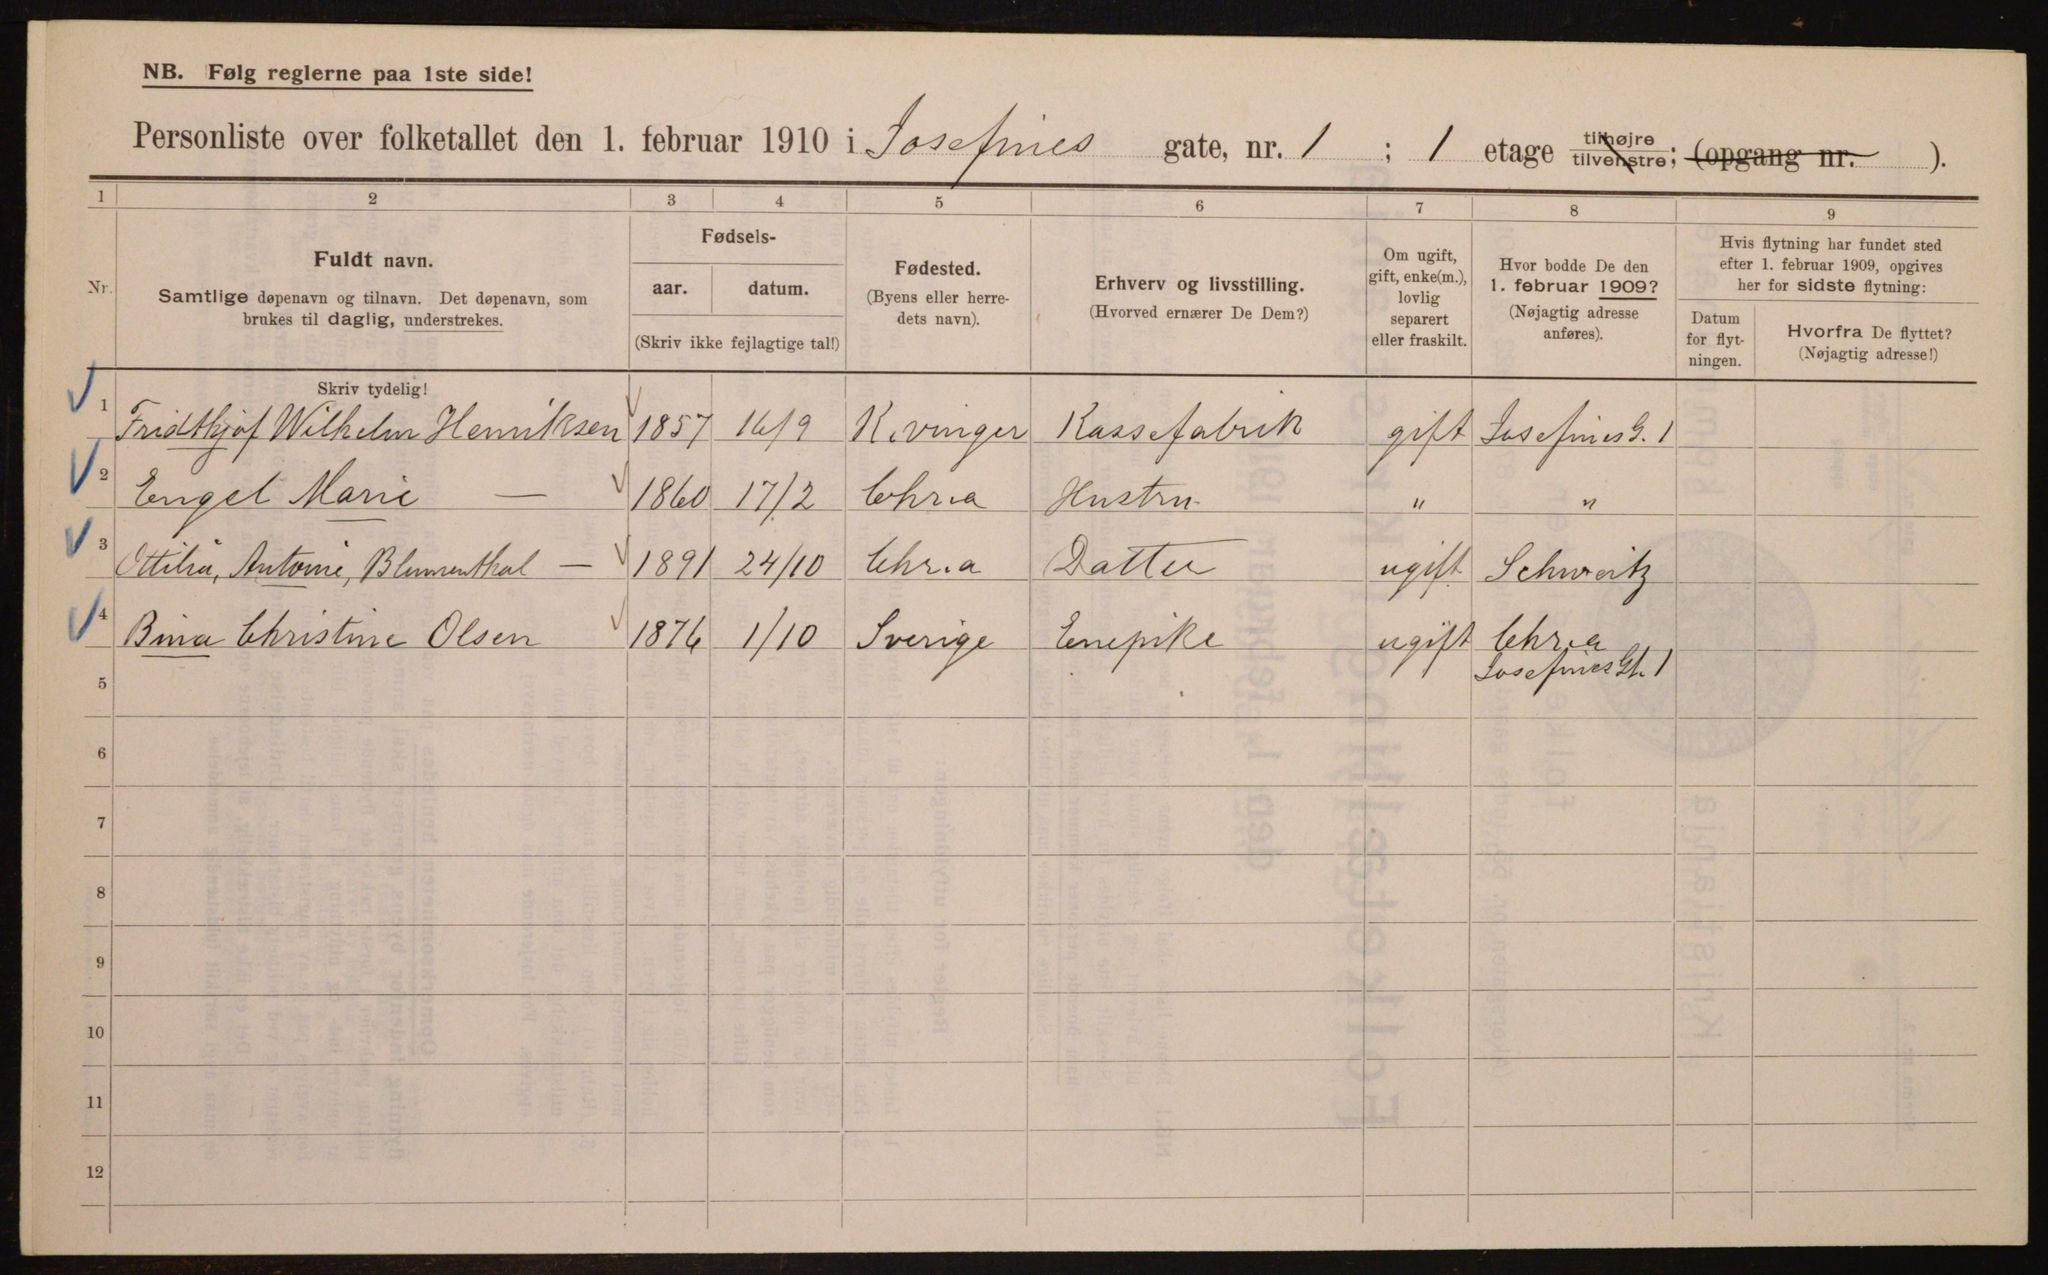 NB. Følg reglerne paa 1ste side!
Personliste over folketallet den 1. februar 1910 i Josefines gate, nr. 1 ; 1 etage tilhøjre tilvenstre; (opgang nr. ).
1 2 3 4 5 6 7 8 9
Nr. Fuldt navn. Samtlige døpenavn og tilnavn. Det døpenavn, som brukes til daglig, understrekes.
Fødsels-
aar. datum.
(Skriv ikke fejlagtige tal!)
Fødested. (Byens eller herredets navn).
Erhverv og livsstilling. (Hvorved ernærer De Dem?)
Om ugift, gift, enke(m.), lovlig separert eller fraskilt.
Hvor bodde De den 1. februar 1909? (Nøjagtig adresse anføres).
Hvis flytning har fundet sted efter 1. februar 1909, opgives her for sidste flytning:
Datum for flytningen.
Hvorfra De flyttet? (Nøjagtig adresse!)
Skriv tydelig!
1 Fridthjof Wilhelm Henriksen 1857 16/9 K.vinger Kassefabrik gift Josefines G. 1
2 Engel Marie — 1860 17/2 Chr.a Hustru " "
3 Ottilia, Antonie, Blumenthal — 1891 24/10 Chr.a Datter ugift Schweitz
4 Bina Christine Olsen 1876 1/10 Sverige Enepike ugift Chr.a
Josefines Gt. 1
5
6
7
8
9
10
11
12